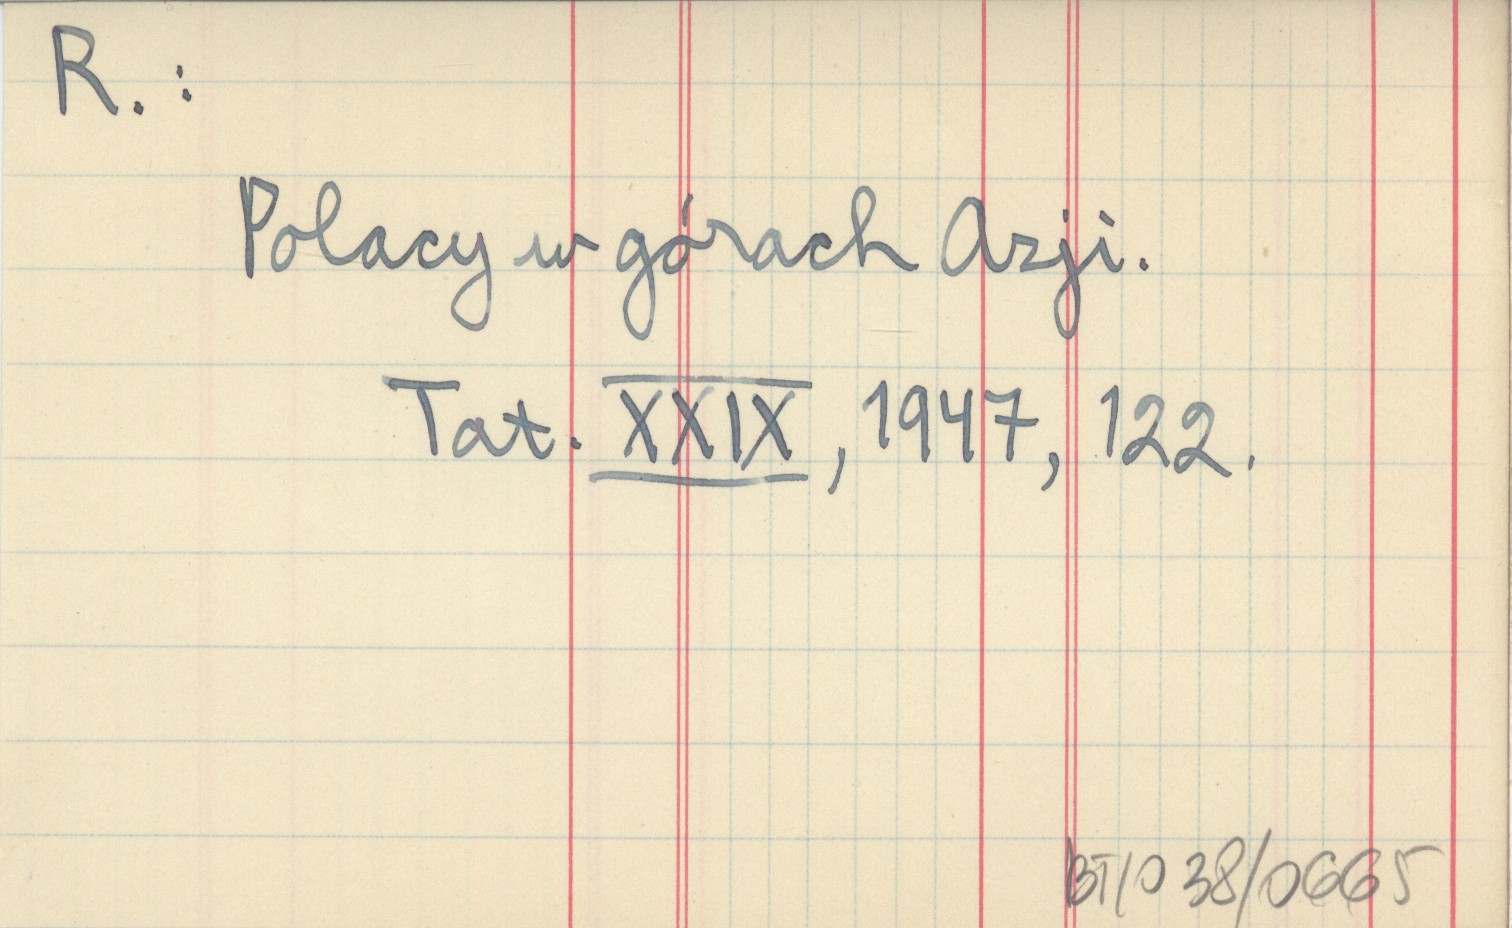 R.:
Polacy w górach Azji.
Tat. XXIX, 1947, 122.
BT/O 38/0665